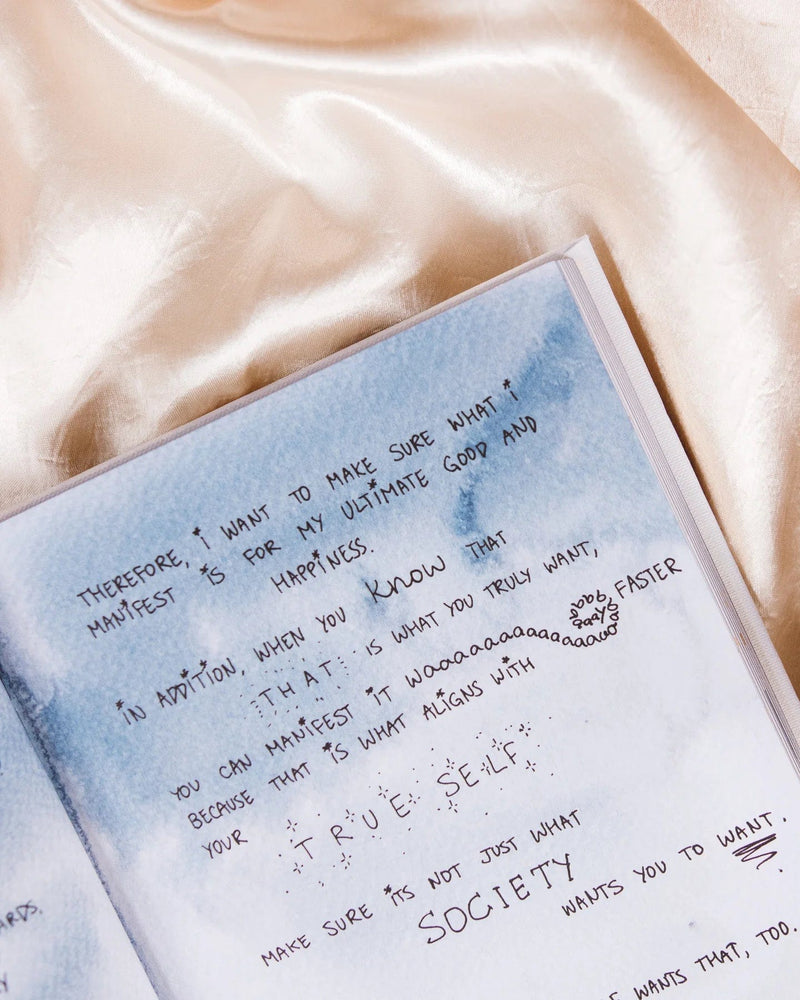 THEREFORE, i WANT TO MAKE SURE WHAT i
MANiFEST iS FOR MY ULTiMATE GOOD AND
HAPPiNESS.
iN ADDiTiON, WHEN YOU KNOW THAT
THAT iS WHAT YOU TRULY WANT,
YOU CAN MANiFEST iT waaaaaaaaaaaaaaaaaaaaaay FASTER
BECAUSE THAT iS WHAT ALiGNS WiTH
YOUR TRUE SELF
MAKE SURE iTS NOT JUST WHAT
SOCIETY WANTS YOU TO WANT.
WANTS THAT, TOO.
ARDS.